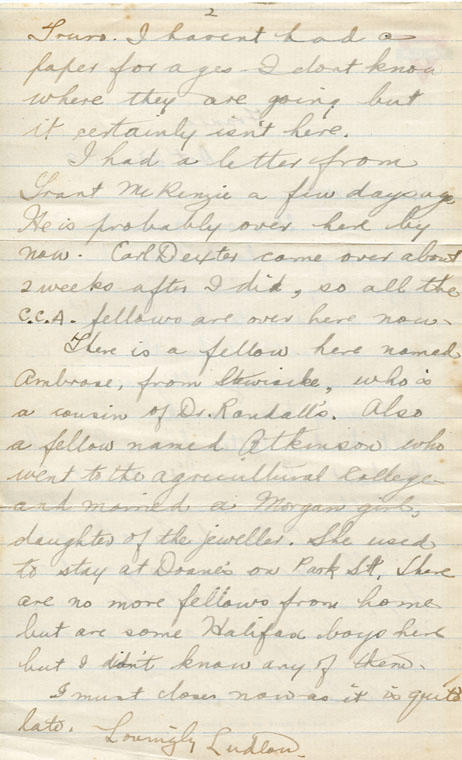 2
Truro. I havent had a
paper for ages. I dont know
where they are going but
it certainly isn't here.
I had a letter from
Grant McKenzie a few days ago
He is probably over here by
now. Carl Dexter came over about
2 weeks after I did, so all the
C.C.A. fellows are over here now.
There is a fellow here named
Ambrose, from Stewiacke, who is
a cousin of Dr. Randall's. Also
a fellow named Atkinson who
went to the agricultural College
and married a Morgan girl,
daughter of the jeweller. She used
to stay at Doane's on Park St. There
are no more fellows from home
but are some Halifax boys here
but I didn't know any of them.
I must close now as it is quite
late. Lovingly Ludlow.